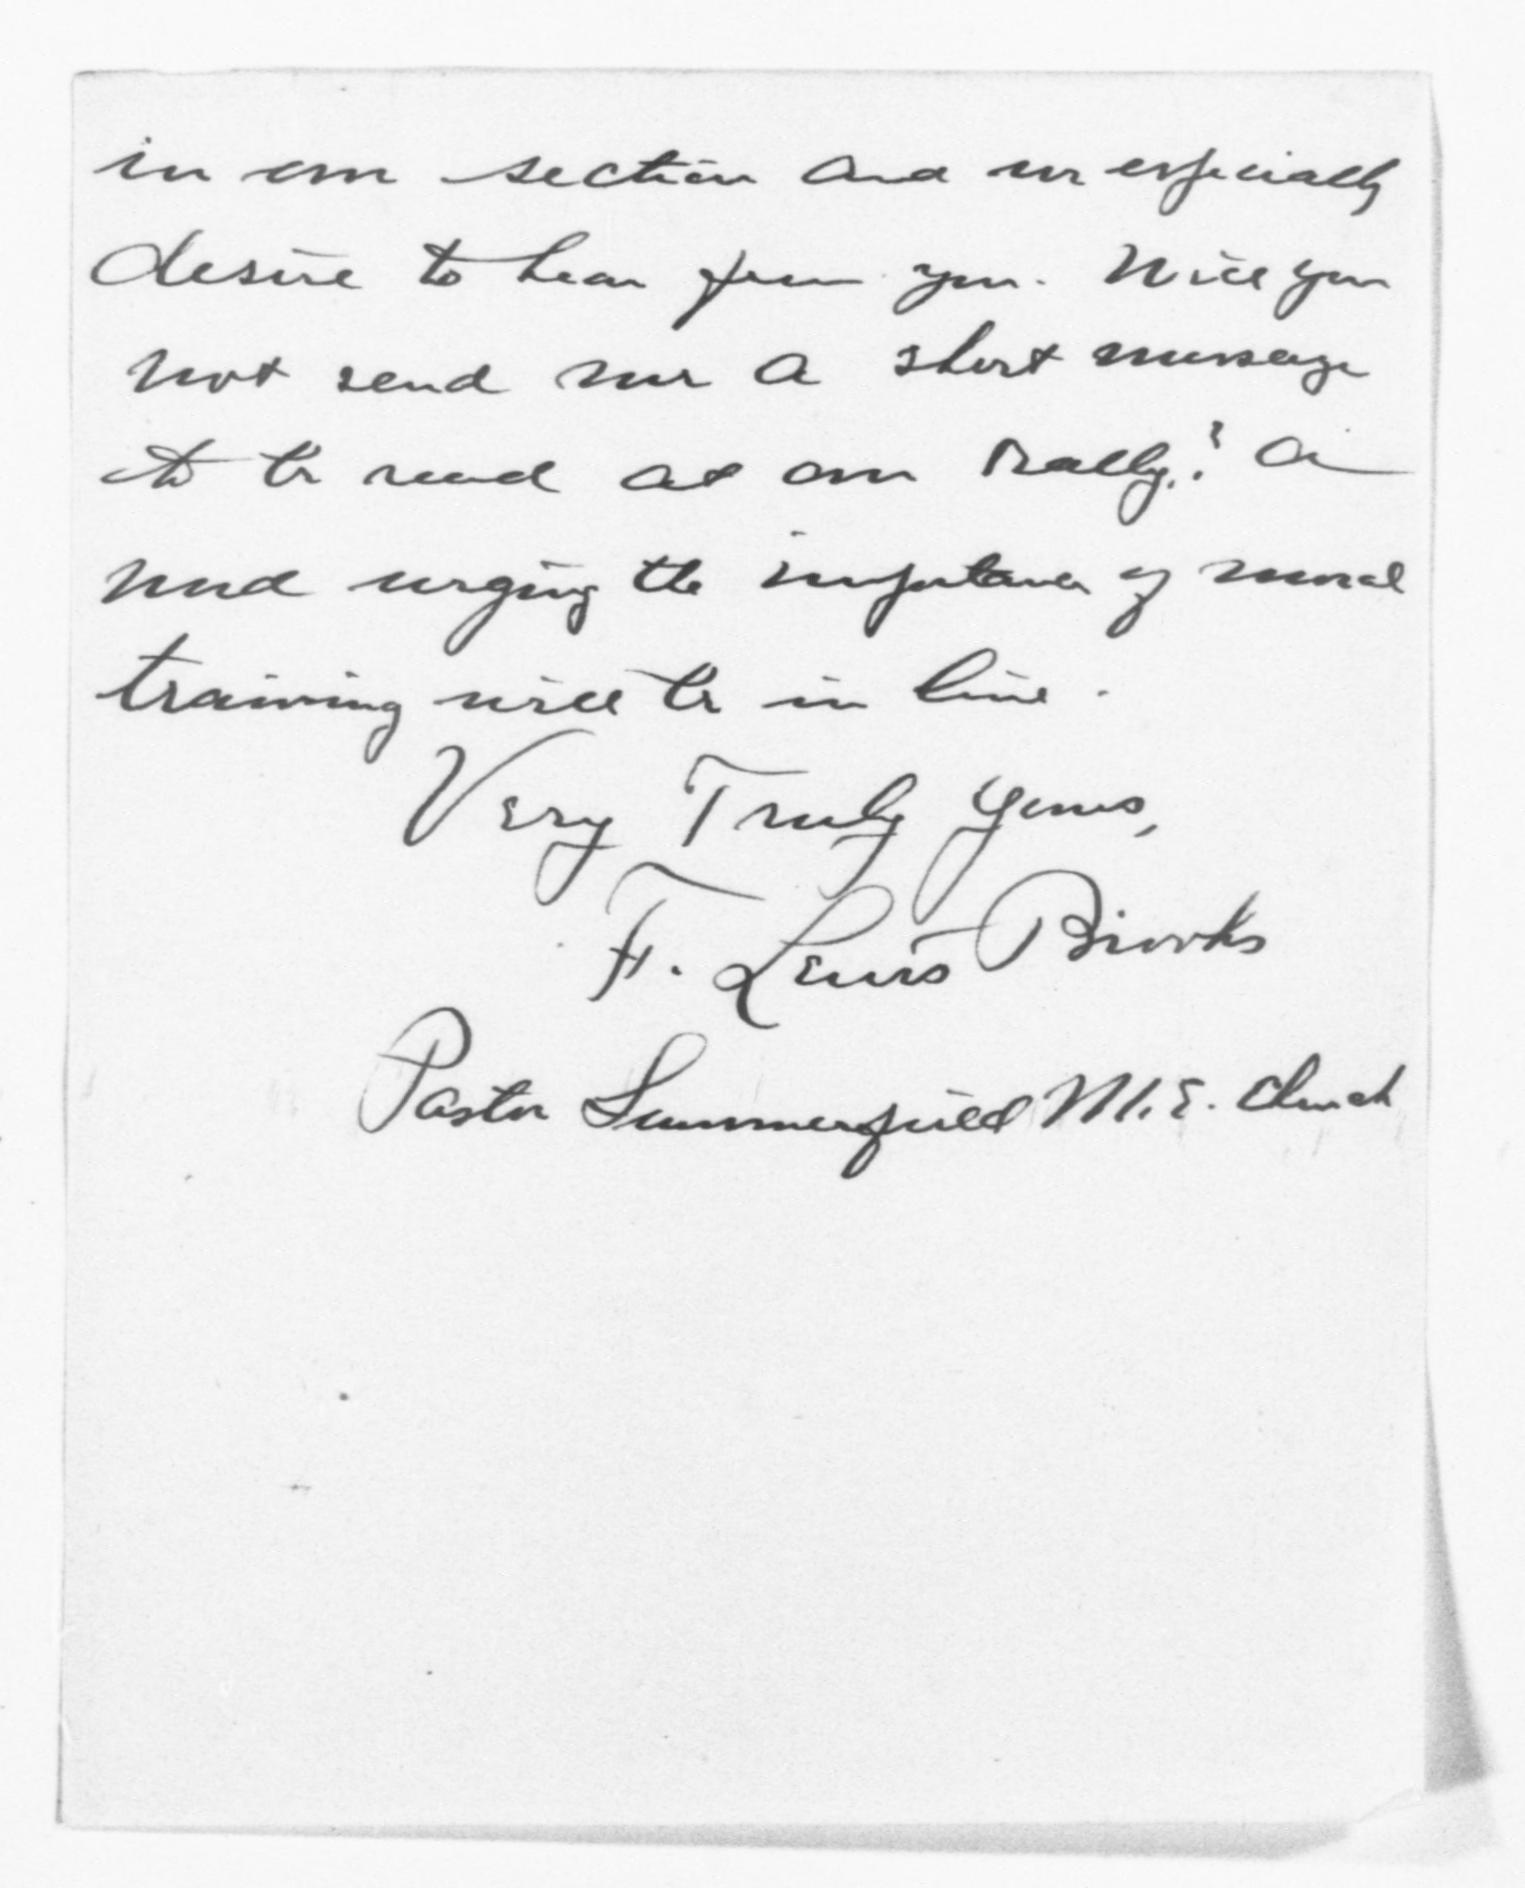 in our section and we especially
desire to hear from you. Will you
not send me a short message
to be read at our rally? A
word urging the importance of moral
training will be in line.
Very Truly Yours,
F. Lewis Brooks
Pastor Summerfield M. E. Church